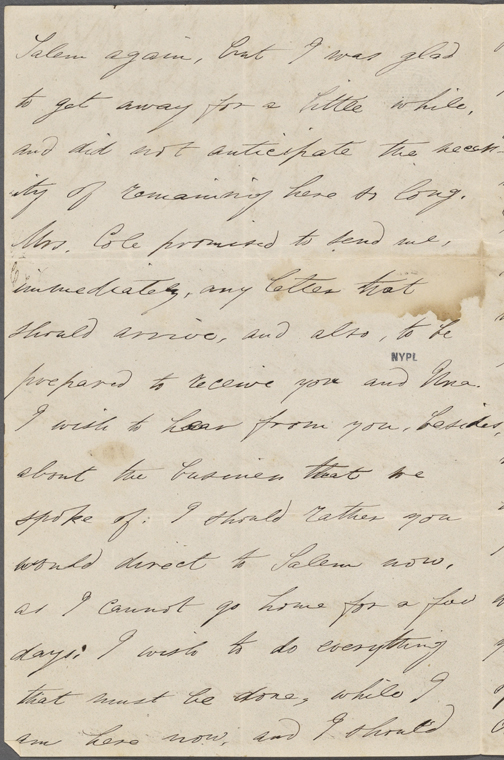 Salem again, but I was glad
to get away for a little while,
and did not anticipate the necess-
ity of remaining here so long.
Mrs. Cole promised to send me,
immediately, any letter that
should arrive, and also, to be
NYPL
prepared to receive you and Una.
I wish to hear from you, besides,
about the business that we
spoke of: I should rather you
would direct to Salem now,
as I cannot go home for a few
days: I wish to do everything
that must be done, while I
am here now, and I should